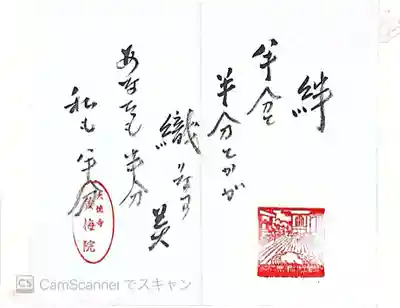 絆
半分と
半分とかが
織りなす美
あなたも半分
私も半分
大徳寺
CS CamScanner でスキャン